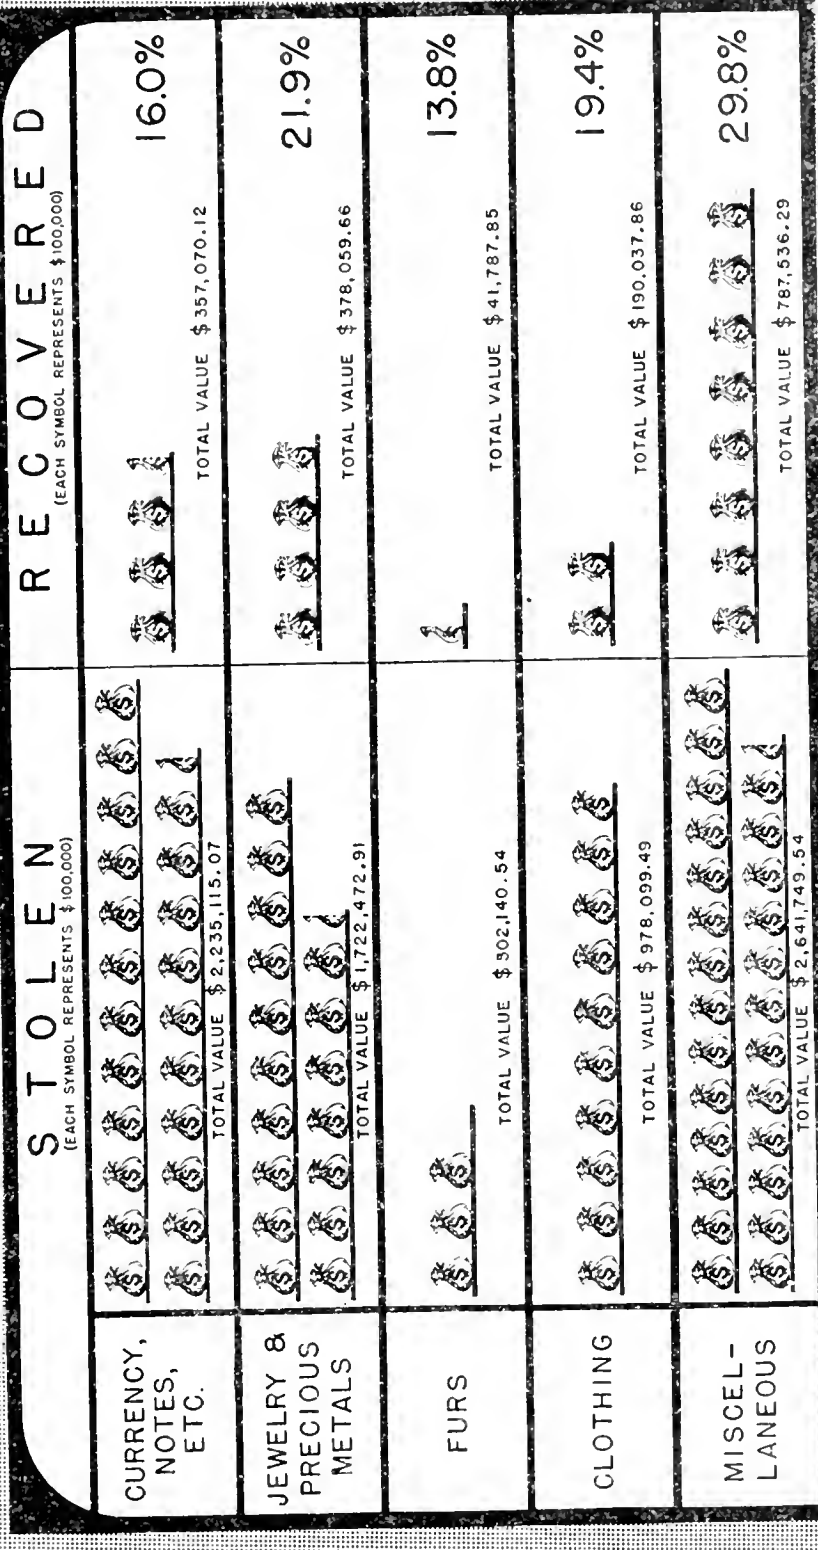 STOLEN
(EACH SYMBOL REPRESENTS $100,000)
RECOVERED
(EACH SYMBOL REPRESENTS $100,000)
CURRENCY,
NOTES,
ETC.
TOTAL VALUE $2,235,115.07
TOTAL VALUE $357,070.12
16.0%
JEWELRY &
PRECIOUS
METALS
TOTAL VALUE $1,722,472.91
TOTAL VALUE $378,059.66
21.9%
FURS
TOTAL VALUE $302,140.54
TOTAL VALUE $41,787.85
13.8%
CLOTHING
TOTAL VALUE $978,099.49
TOTAL VALUE $190,037.86
19.4%
MISCEL-
LANEOUS
TOTAL VALUE $2,641,749.54
TOTAL VALUE $787,536.29
29.8%